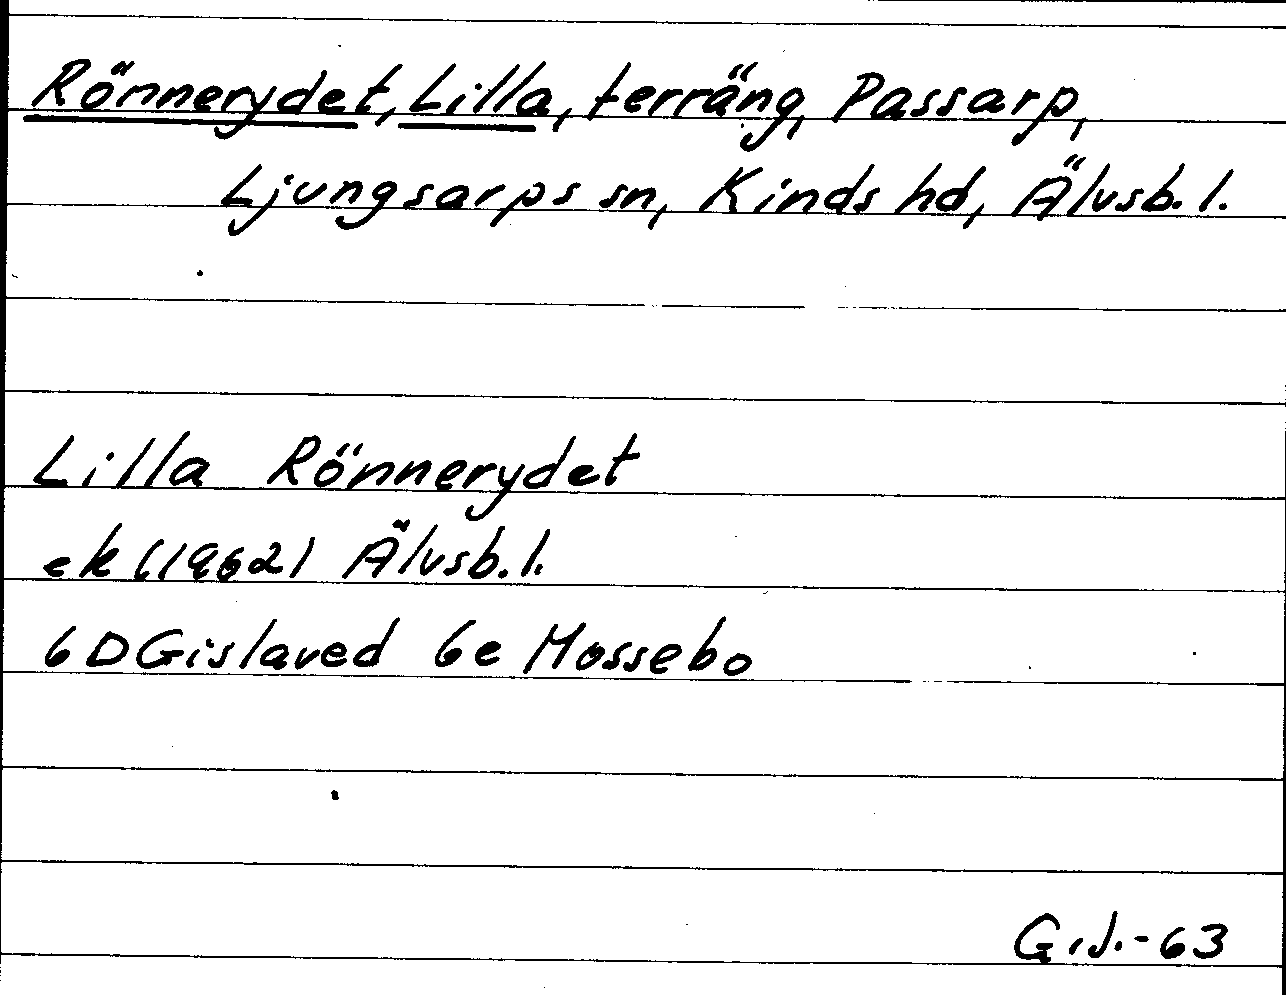 Rönnerydet, Lilla, terräng, Passarp,
Ljungsarps sn, Kinds hd, Älvsb. l.
Lilla Rönnerydet
ek (1962) Älvsb. l.
6D Gislaved 6e Mossebo
G.J.-63